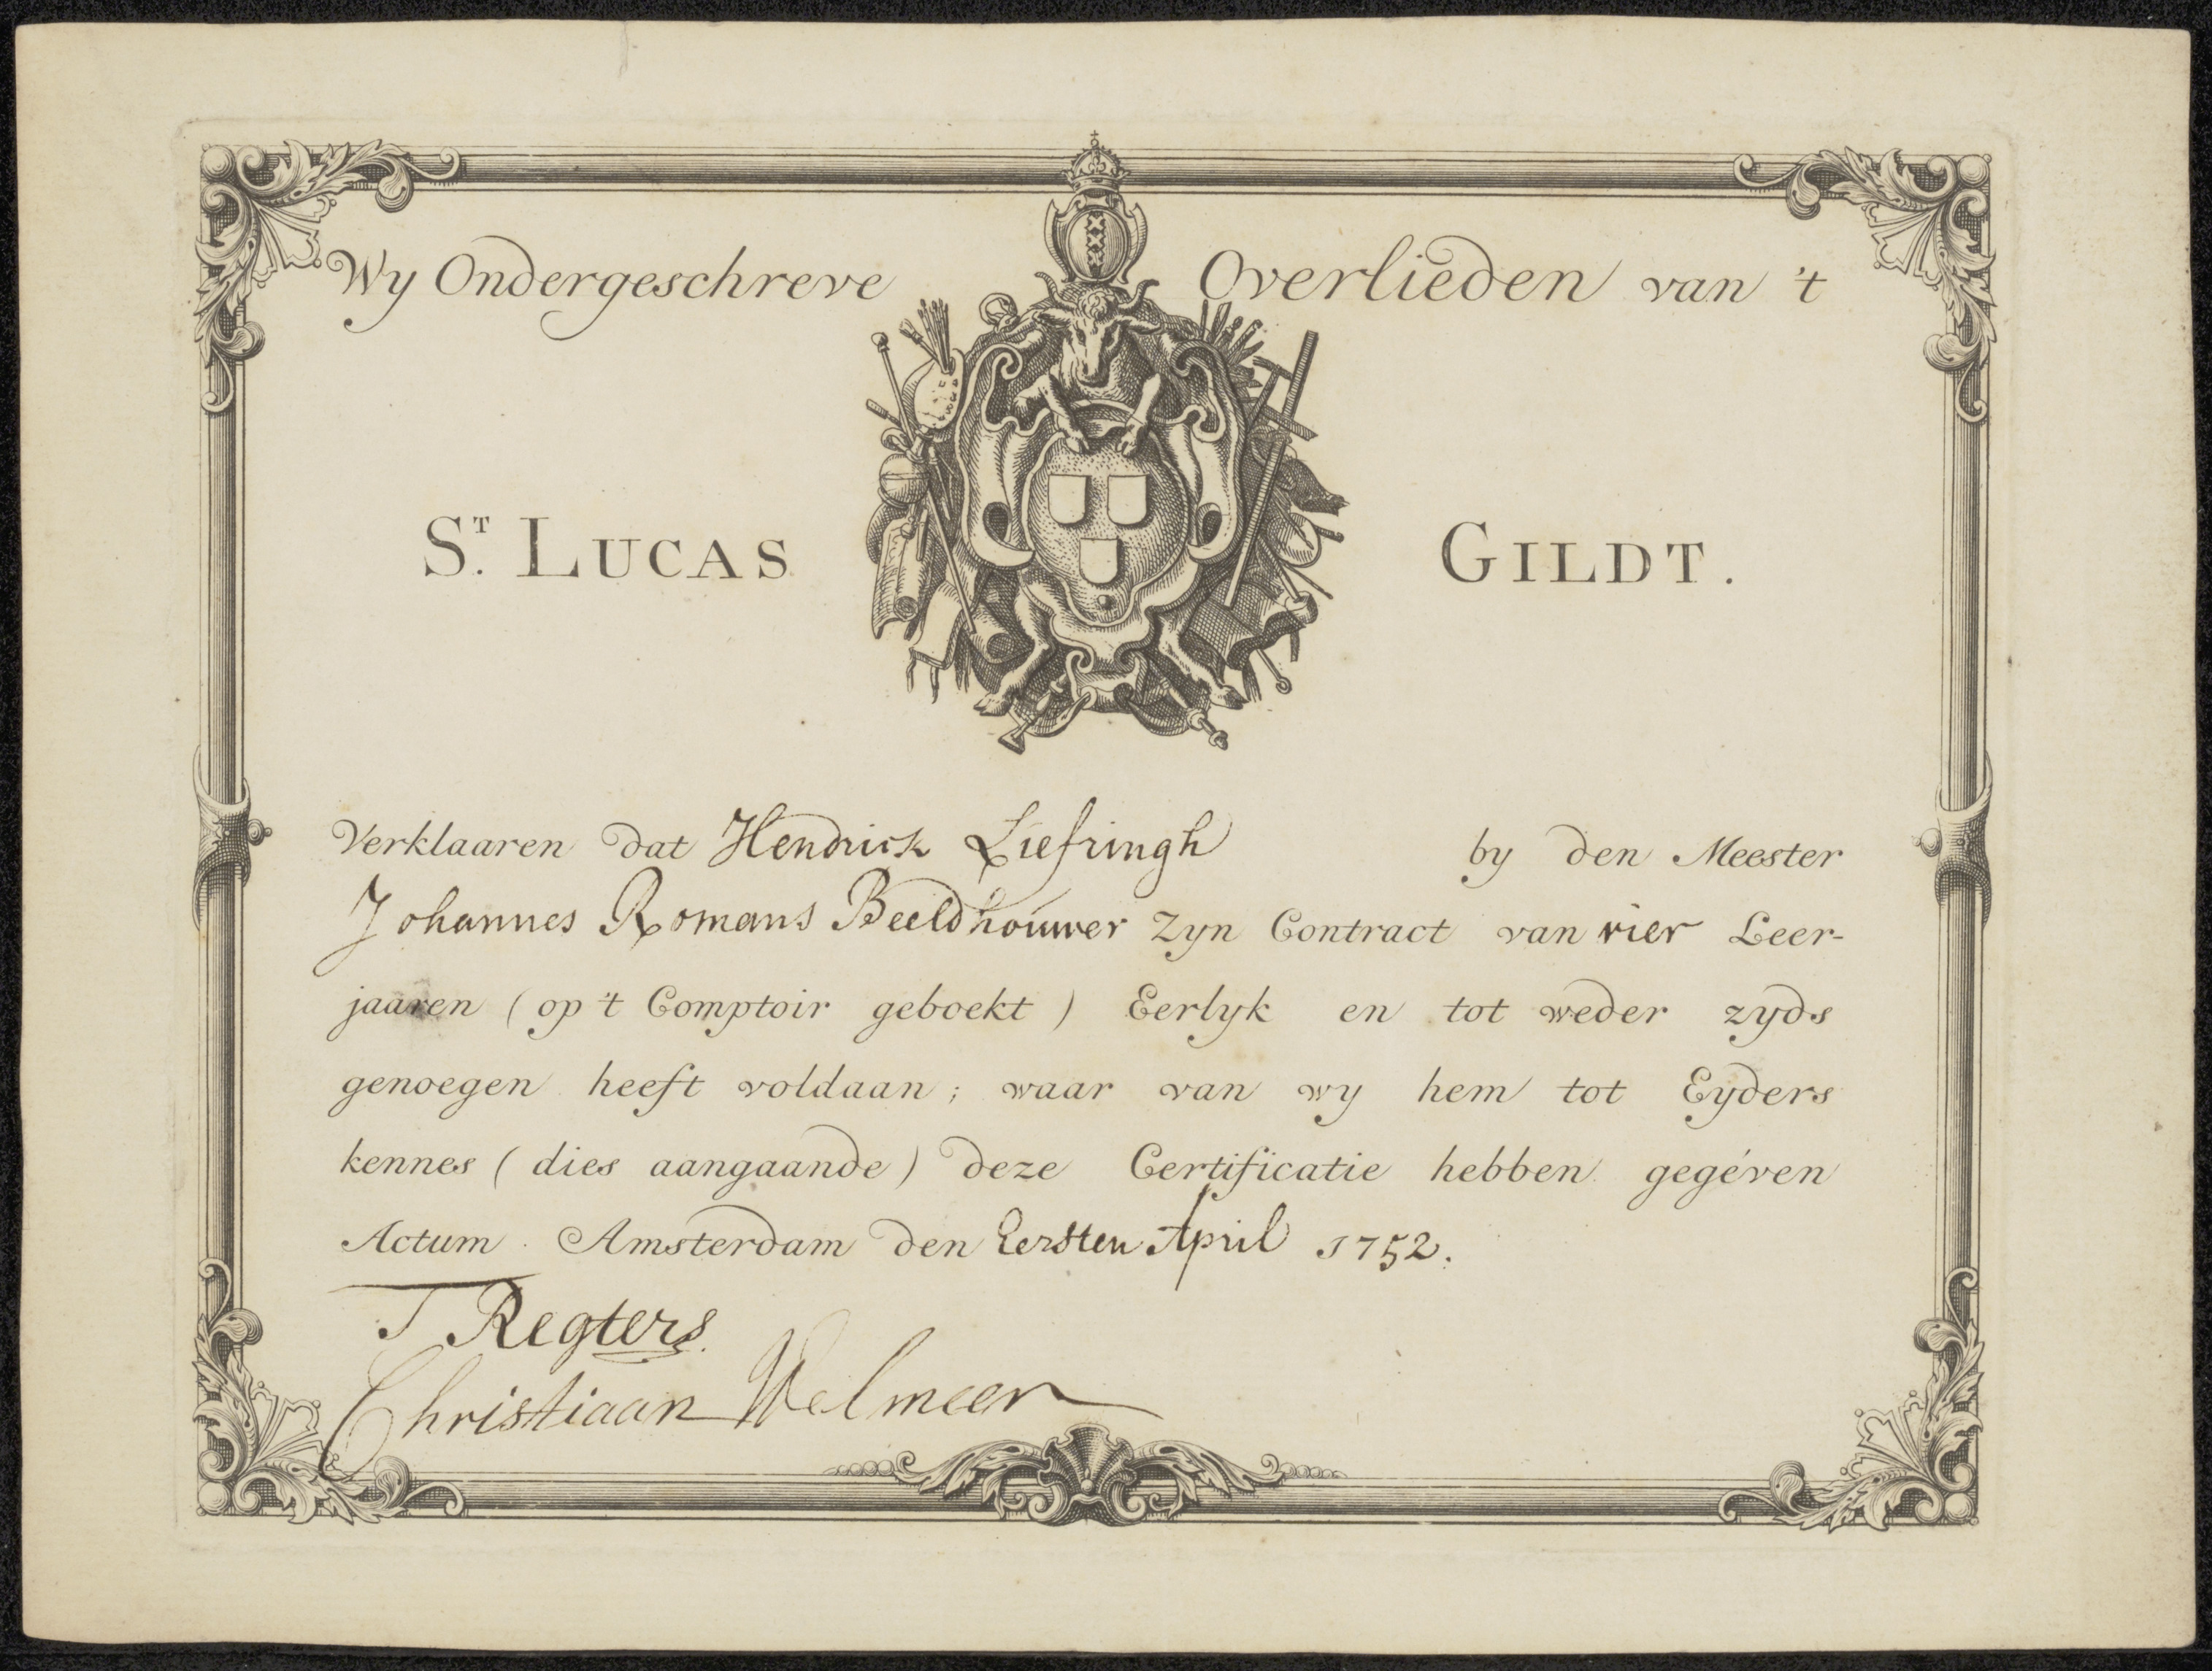 Wy Ondergeschreve Overlieden van 't
S.T LUCAS GILDT.
Verklaaren dat Hendrick Liefringh by den Meester
Johannes Romans Beeldhouwer Zyn Contract van vier Leer-
jaaren (op 't Comptoir geboekt) Eerlyk en tot weder zyds
genoegen heeft voldaan; waar van wy hem tot Eyders
kennes (dies aangaande) deze Certificatie hebben gegéven
Actum Amsterdam den Eersten April 1752.
T Regters.
Christiaan Welmeer